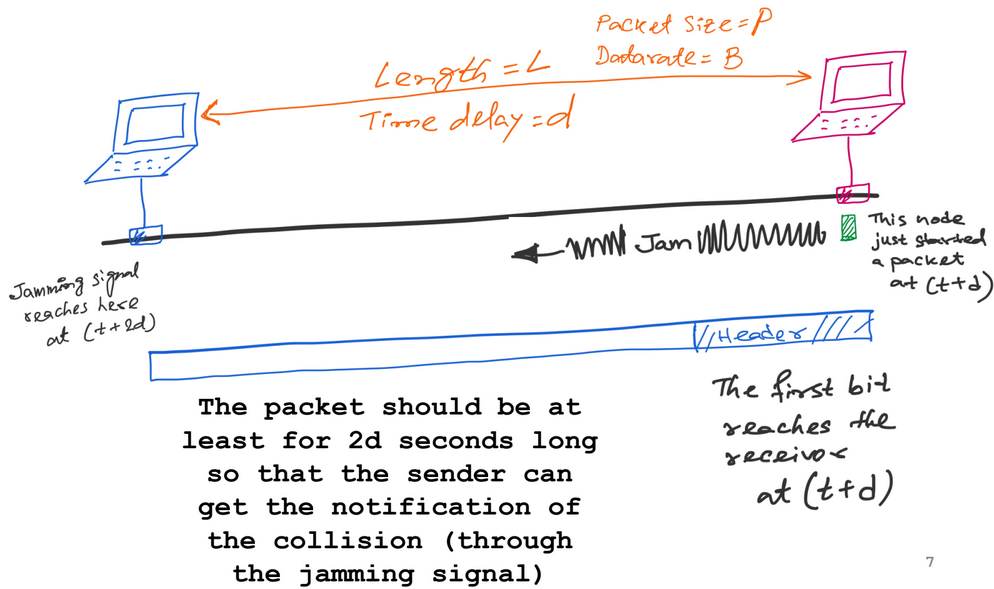 Packet Size = P
Datarate = B
Length = L
Time delay = d
Jam
This node
just started
a packet
at (t+d)
Jamming signal
reaches here
at (t+2d)
Header
The first bit
reaches the
receivor
at (t+d)
The packet should be at
least for 2d seconds long
so that the sender can
get the notification of
the collision (through
the jamming signal)
7